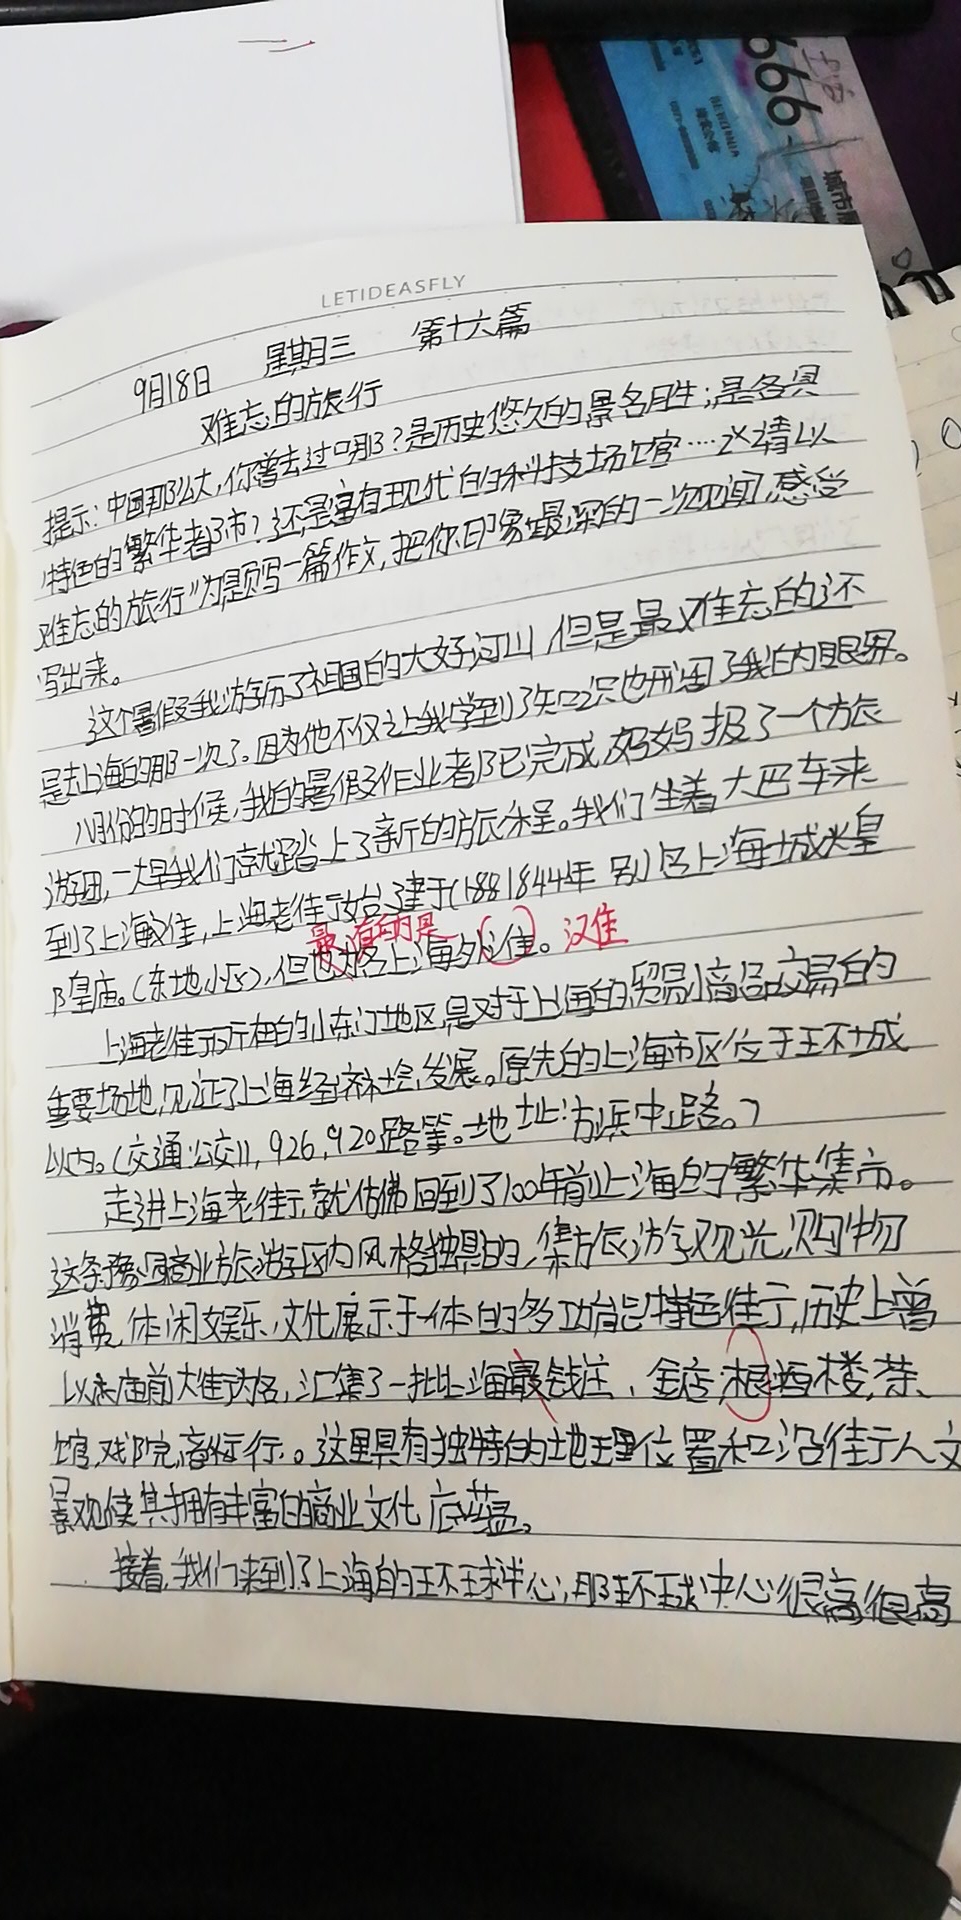 666
城市
LETIDEASFLY
9月18日 星期三 第十六篇
难忘的旅行
提示:中国那么大,你曾去过哪?是历史悠久的景名胜;是各具
特色的繁华都市?还是富有现代的科技场馆····这请以
难忘的旅行"为题写一篇作文,把你印象最深的一次见闻,感受
写出来。
这个暑假我游历了祖国的大好河山,但是最难忘的还
是去上海的那一次了。因为他不仅让我学到了知识也开阔了我的眼界。
八月份的时候,我的暑假作业都已完成,妈妈报了一个旅
游团,一大早我们就踏上了新的旅程。我们坐着大巴车来
到了上海老街,上海老街始建于(1881844年 别)名上海城火皇
皇庙。(东地小区),但也对名上海外街。汉街
最有的是
上海老街所在的小东门地区,是对于上海的贸易小商品交易的
重要场地,见证了上海经济社会发展。原先的上海市区位于王不城
以内。(交通:公交11,926,920路等。地址:方浜中路。)
走进上海老街,就仿佛回到了100年前上海的繁华集市。
这条豫园商业旅游区内风格独具的,集旅游观光,购物
消费,休闲娱乐,文化展示于一体的多功能特色街,历史上曾
以庙前大街为名,汇集了一批上海最钱庄、金店,根酒楼,茶、
馆,戏院,商行。这里具有独特的地理位置和沿街人文
景观使其拥有丰富的商业文化底蕴。
接着,我们来到了上海的环球中心,那环球中心很高很高